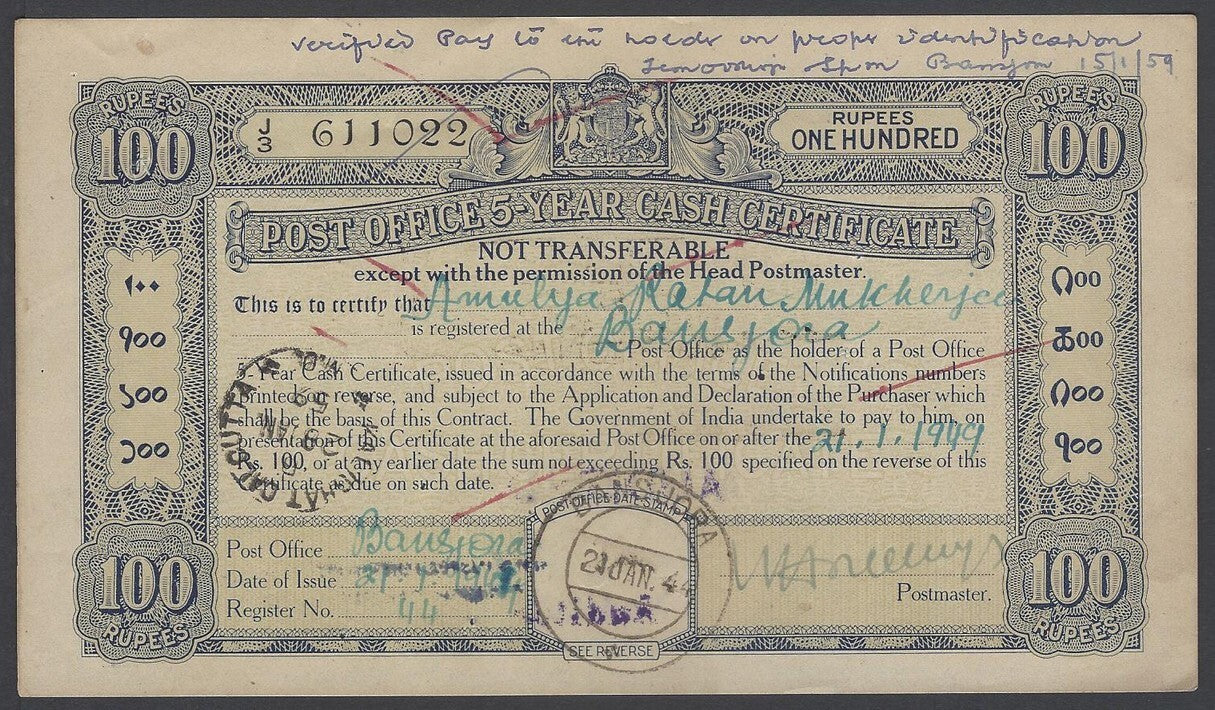 verified Pay to the holder on proper identification
15/1/59
RUPEES
100
J
3
611022
RUPEES
ONE HUNDRED
RUPEES
100
POST OFFICE 5-YEAR CASH CERTIFICATE
NOT TRANSFERABLE
except with the permission of the Head Postmaster.
This is to certify that Amulya Ratan Mukherjee
is registered at the Bansjora
Post Office as the holder of a Post Office
Year Cash Certificate, issued in accordance with the terms of the Notifications numbers
printed on reverse, and subject to the Application and Declaration of the Purchaser which
shall be the basis of this Contract. The Government of India undertake to pay to him, on
presentation of this Certificate at the aforesaid Post Office on or after the 21.1.1949
Rs. 100, or at any earlier date the sum not exceeding Rs. 100 specified on the reverse of this
Certificate as due on such date.
१००
১০০
CALCUTTA
POST OFFICE DATE STAMP
BANSJORA
21 JAN. 44
Post Office Bansjora
Date of Issue 21.1.1944
Register No. 44
Postmaster.
SEE REVERSE
100
RUPEES
100
RUPEES